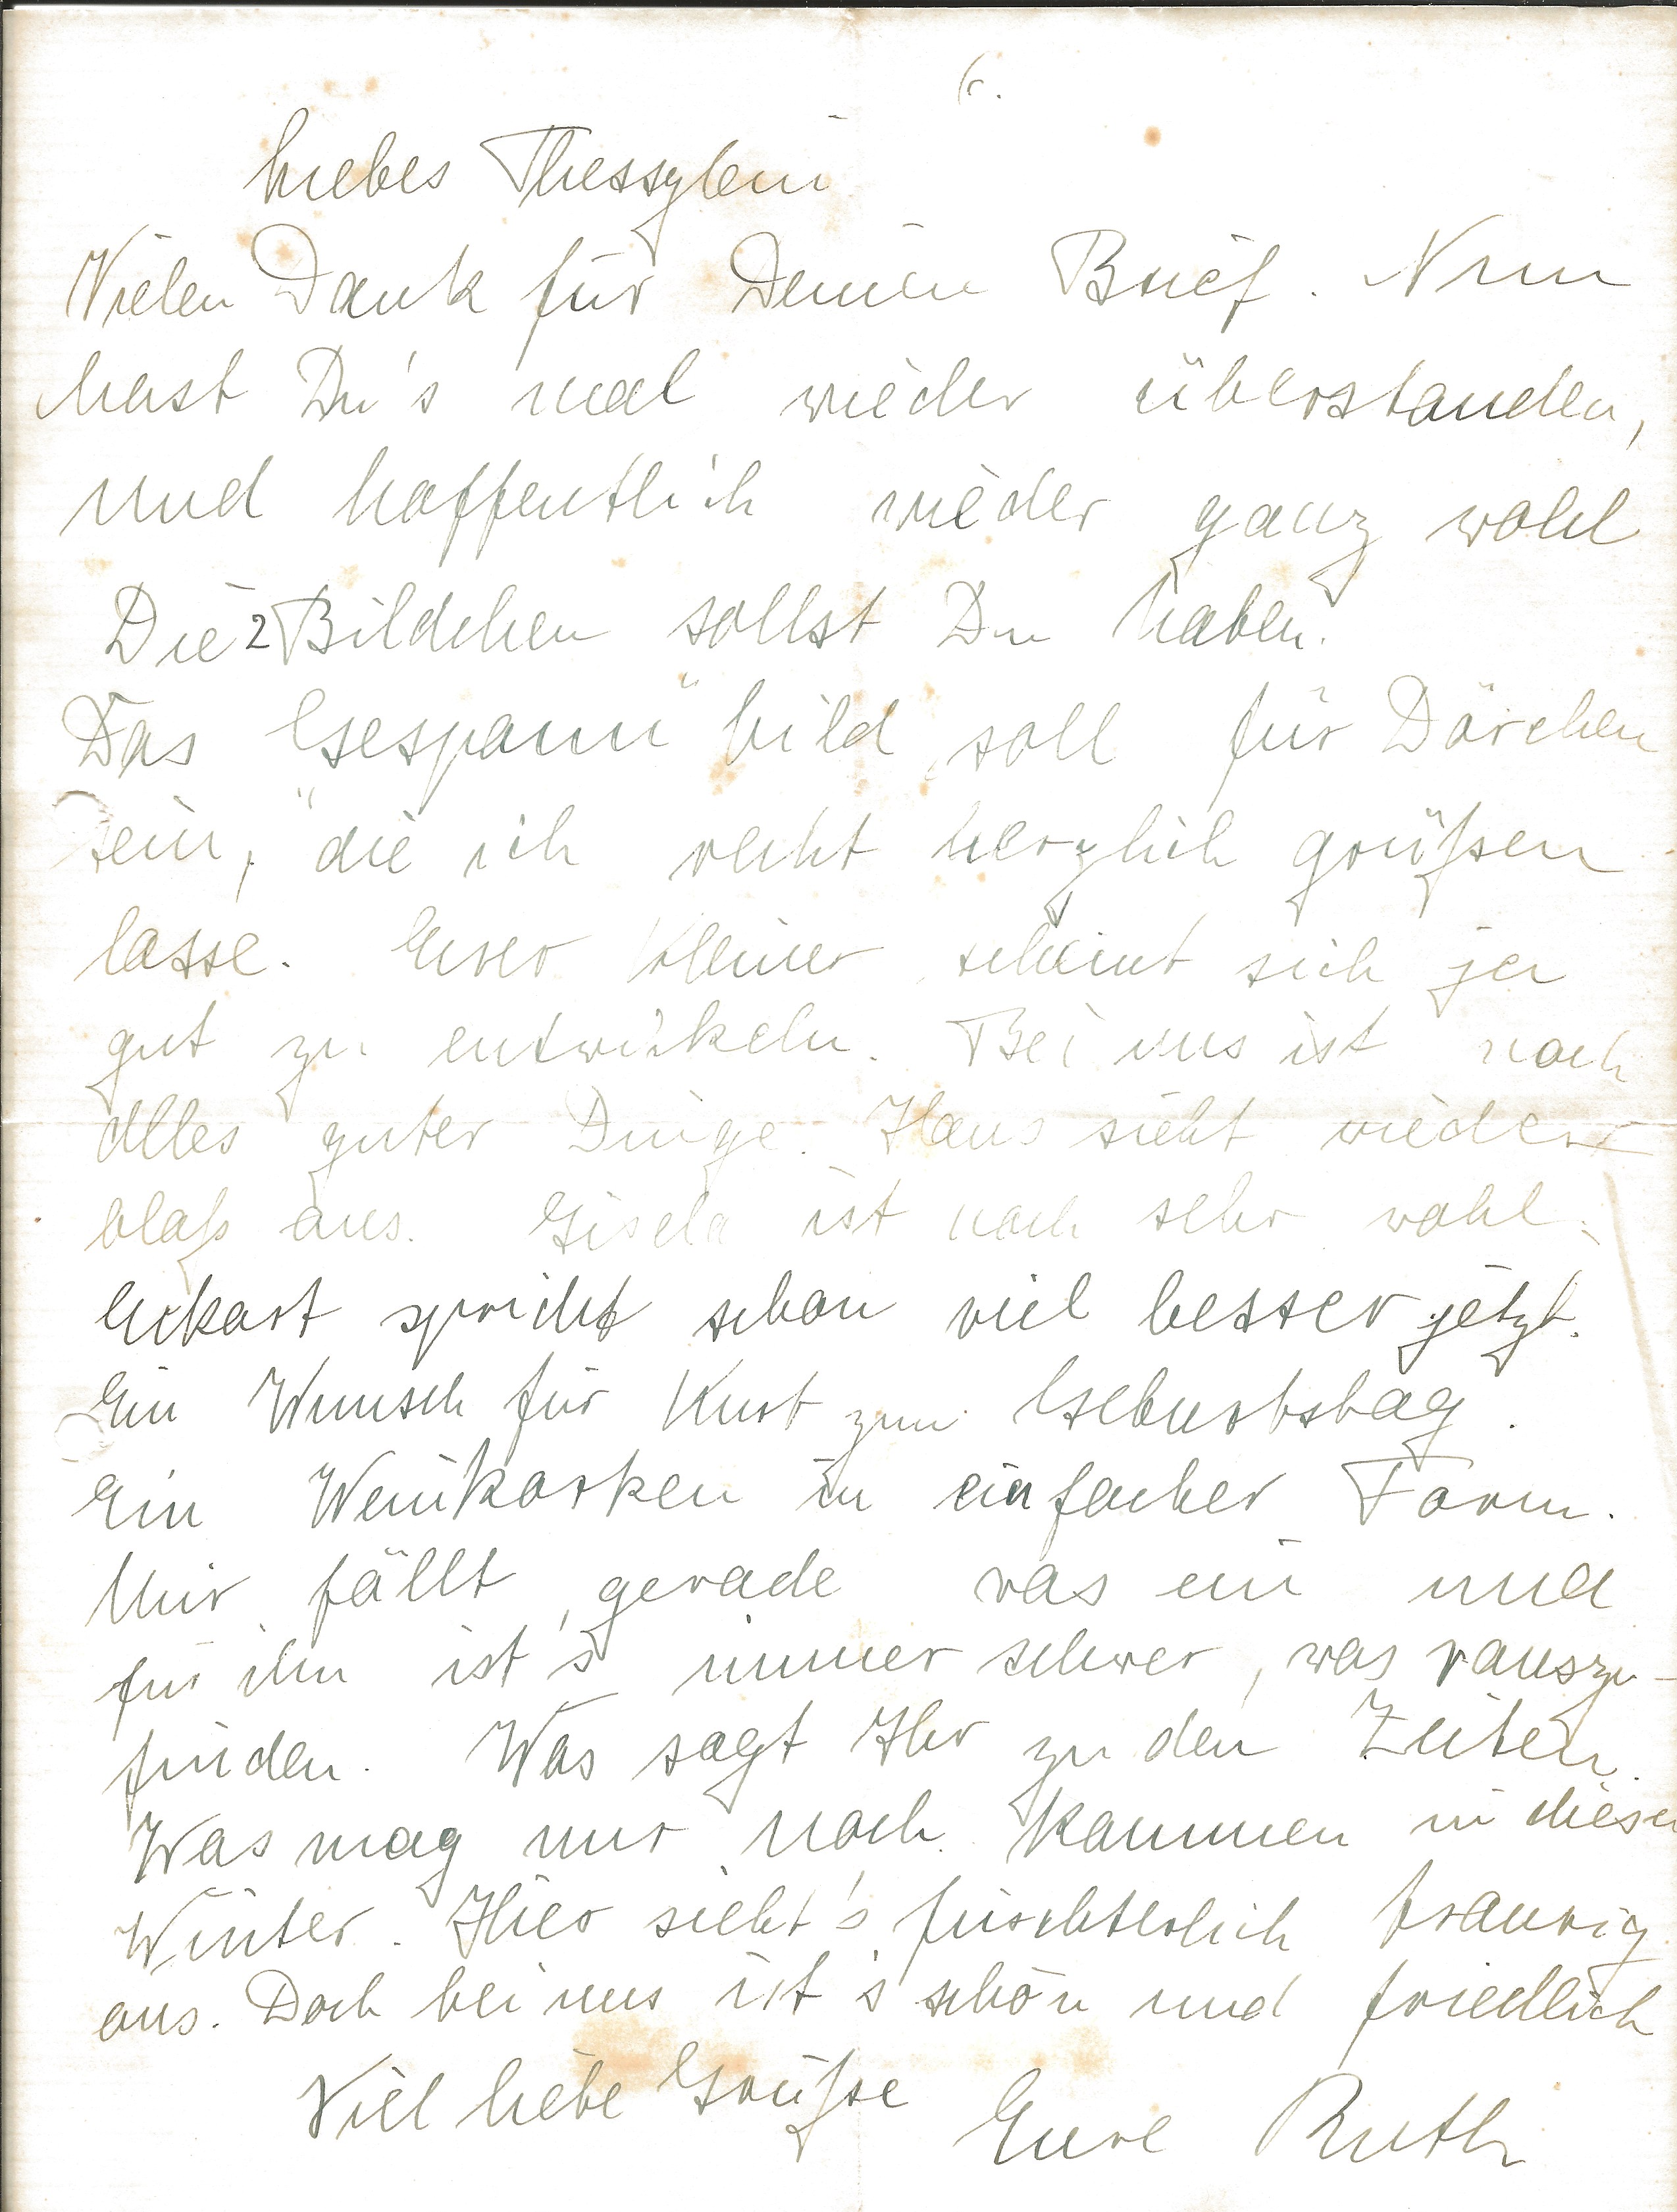 6.
Liebes Thessylein
Vielen Dank für Deinen Brief. Nun
hast Du's mal wieder überstanden,
und hoffentlich wieder ganz wohl
Die 2 Bildchen sollst Du haben.
Das "Gespann" bild soll für Dörchen
sein, die ich recht herzlich grüßen
lasse. Euer Kleiner scheint sich ja
gut zu entwickeln. Bei uns ist noch
alles guter Dinge. Hans sieht wieder
blaß aus. Gisela ist noch sehr wohl.
Eckart spricht schon viel besser jetzt.
Ein Wunsch für Kurt zum Geburtstag.
Ein Weinkorken in einfacher Form.
Mir fällt gerade was ein und
für ihn ist's immer schwer, was rauszu-
finden. Was sagt Ihr zu den Zeiten.
Was mag nur noch kommen in diesen
Winter. Hier sieht's fürchterlich traurig
aus. Doch bei uns ist's schön und friedlich
Viel liebe Grüße Eure Ruth